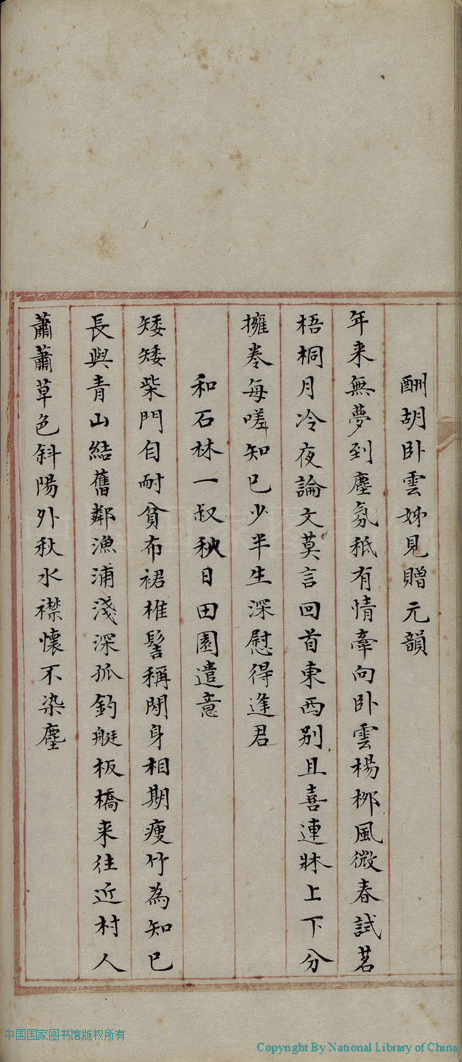 酬胡卧雲姊見贈元韻
年来無夢到塵氛秪有情牽向卧雲楊栁風微春試茗
梧桐月冷夜論文莫言回首東西别且喜連牀上下分
擁卷每嗟知己少半生深慰得逢君
和石林一叔秋日田園遣意
矮矮柴門自耐貧布裙椎髻稱閒身相期瘦竹為知己
長與青山結舊鄰漁浦淺深孤釣艇板橋来往近村人
蕭蕭草色斜陽外秋水襟懷不染塵
中国国家图书馆版权所有
Copyright By National Library of China